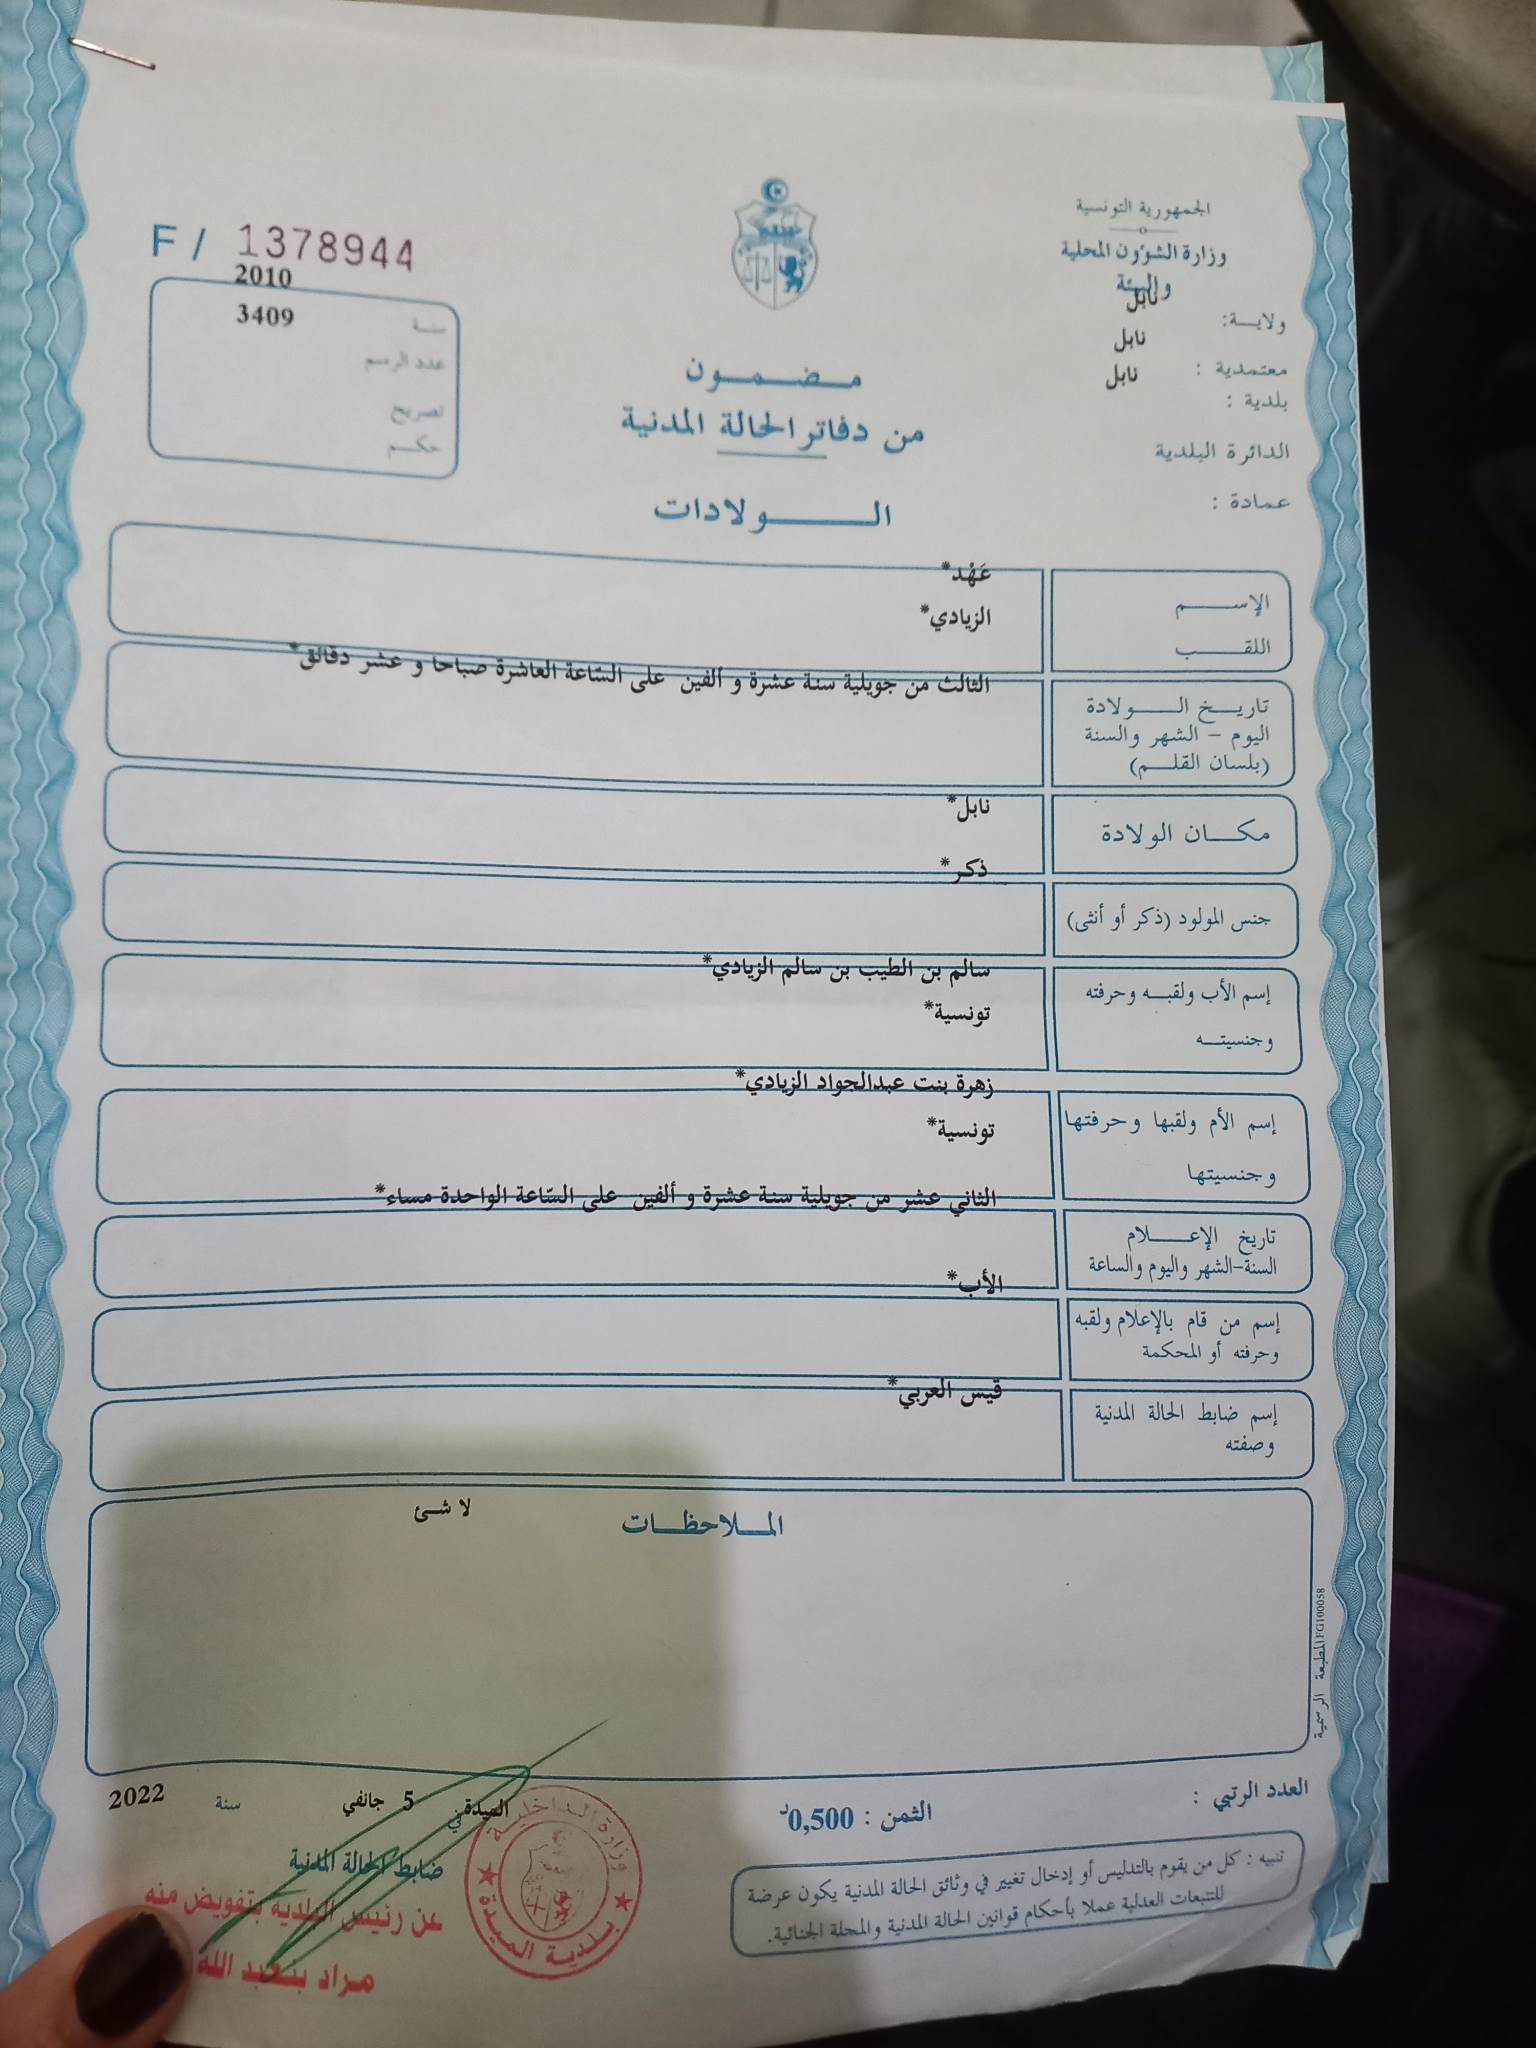 الجمهورية التونسية
وزارة الشؤون المحلية
والبيئة
ولايـــة: نابل
معتمدية : نابل
بلدية : نابل
الدائرة البلدية
عمادة :
F / 1378944
سنـة 2010
عدد الرسم 3409
تصريح
حكـــم
مـضـمـــون
من دفاتر الحالة المدنية
الـــــولادات
الإســـــم عَهْد*
اللقـــب الزيادي*
تاريـــخ الـــــولادة الثالث من جويلية سنة عشرة و ألفين على السّاعة العاشرة صباحا و عشر دقائق*
اليوم – الشهر والسنة
(بلسان القلـــم)
مكــــان الولادة نابل*
جنس المولود (ذكر أو أنثى) ذكر*
إسم الأب ولقبـــه وحرفته سالم بن الطيب بن سالم الزيادي*
وجنسيتـــه تونسية*
إسم الأم ولقبها وحرفتها زهرة بنت عبدالجواد الزيادي*
وجنسيتها تونسية*
تاريخ الإعـــــلام الثاني عشر من جويلية سنة عشرة و ألفين على السّاعة الواحدة مساء*
السنة-الشهر واليوم والساعة
إسم من قام بالإعلام ولقبه الأب*
وحرفته أو المحكمة
إسم ضابط الحالة المدنية قيس العربي*
وصفته
المـــلاحظـــات لا شئ
المطبعة الرسمية FG100058
العدد الرتبي :
الثمن : 0,500د
الميدة في 5 جانفي سنة 2022
ضابط الحالة المدنية
عن رئيس البلدية بتفويض منه
مراد بنعبد الله
وزارة الداخلية
بلدية الميدة
تنبيه : كل من يقوم بالتدليس أو إدخال تغيير في وثائق الحالة المدنية يكون عرضة
للتتبعات العدلية عملا بأحكام قوانين الحالة المدنية والمجلة الجنائية.